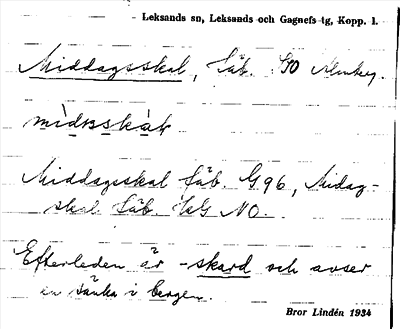 Leksands sn, Leksands och Gagnefs tg, Kopp. l.
Middagsskal, fäb. SO
mìdnskàk
Middagsskal fäb. G96, Midag-
skal fäb. HG NO.
Efterleden är -skard och avser
en sänka i bergen.
Bror Lindén 1934